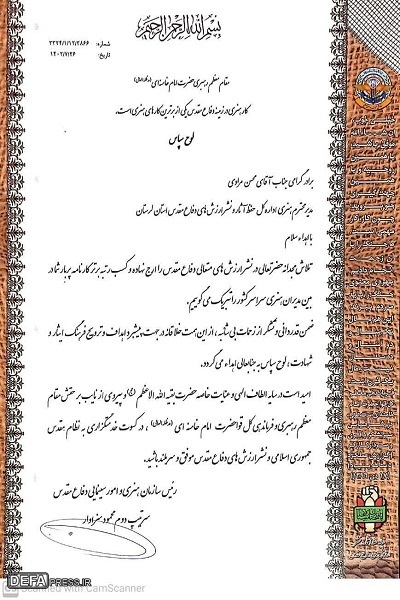 بسم الله الرحمن الرحیم
شماره: ۳۳۲۴/۱/۱۲/۳۸۶۶
تاریخ: ۱۴۰۲/۷/۲۶
مقام معظم رهبری حضرت امام خامنه ای (مدظله العالی)
کار هنری در زمینه دفاع مقدس یکی از برترین کارهای هنری است.
لوح سپاس
برادر گرامی جناب آقای محسن مرادی
مدیر محترم هنری اداره کل حفظ آثار و نشر ارزش های دفاع مقدس استان لرستان
با اهداء سلام
تلاش مجدانه حضرتعالی در نشر ارزش های متعالی دفاع مقدس را ارج نهاده و کسب رتبه برتر کارنامه پربار شما در
بین مدیران هنری سراسر کشور را تبریک می گوییم.
ضمن قدردانی و تشکر از زحمات بی شائبه، از این همت خلاقانه در جهت پیشبرد اهداف و ترویج فرهنگ ایثار و
شهادت، لوح سپاس به جنابعالی اهداء می گردد.
امید است در سایه الطاف الهی و عنایت خاصه حضرت بقیه الله الاعظم (عج) و پیروی از نایب برحقش مقام
معظم رهبری و فرماندهی کل قوا حضرت امام خامنه ای (مدظله العالی)، در کسوت خدمتگزاری به نظام مقدس
جمهوری اسلامی و نشر ارزش های دفاع مقدس موفق و سربلند باشید.
رئیس سازمان هنری و امور سینمایی دفاع مقدس
سرتیپ دوم محمود سزاوار
Scanned with CamScanner
DEFAPRESS.IR